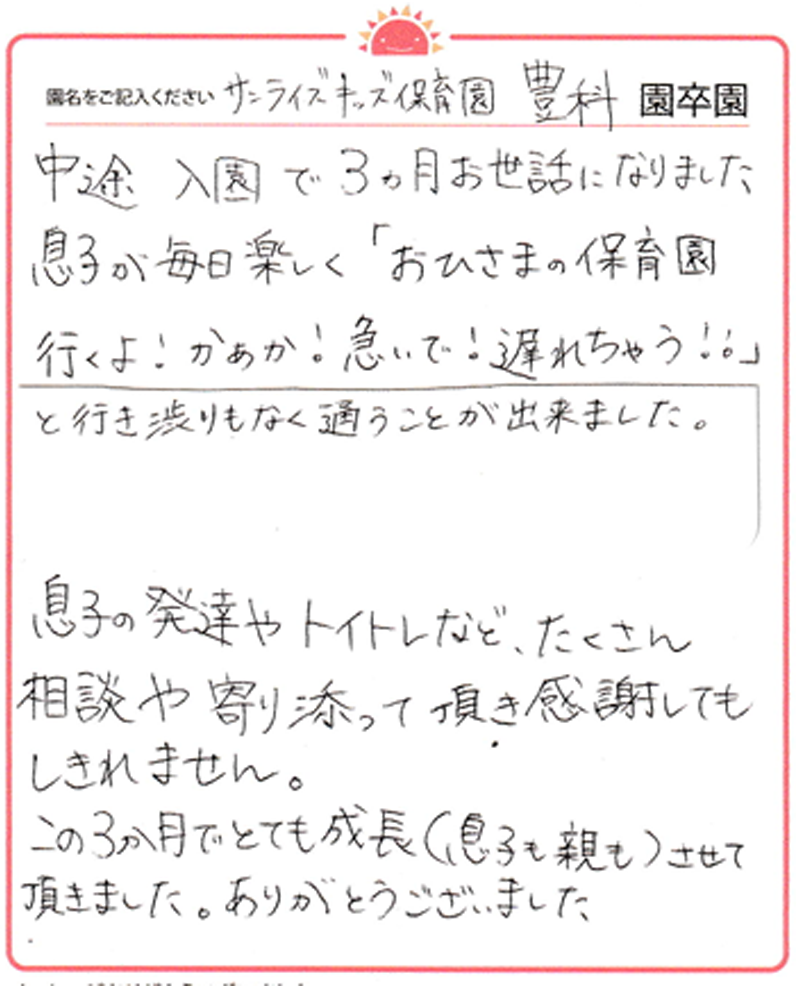 園名をご記入ください サンライズキッズ保育園 豊科 園卒園
中途入園で3ヵ月お世話になりました、
息子が毎日楽しく「おひさまの保育園
行くよ!かぁか!急いで!遅れちゃう!!。」
と行き渋りもなく通うことが出来ました。
息子の発達やトイトレなど、たくさん
相談や寄り添って頂き感謝しても
しきれません。
この3か月でとても成長(息子も親も)させて
頂きました。ありがとうございました